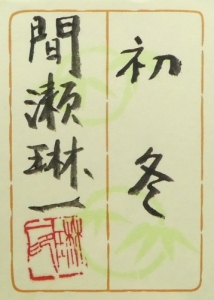 初冬
間瀬琳一